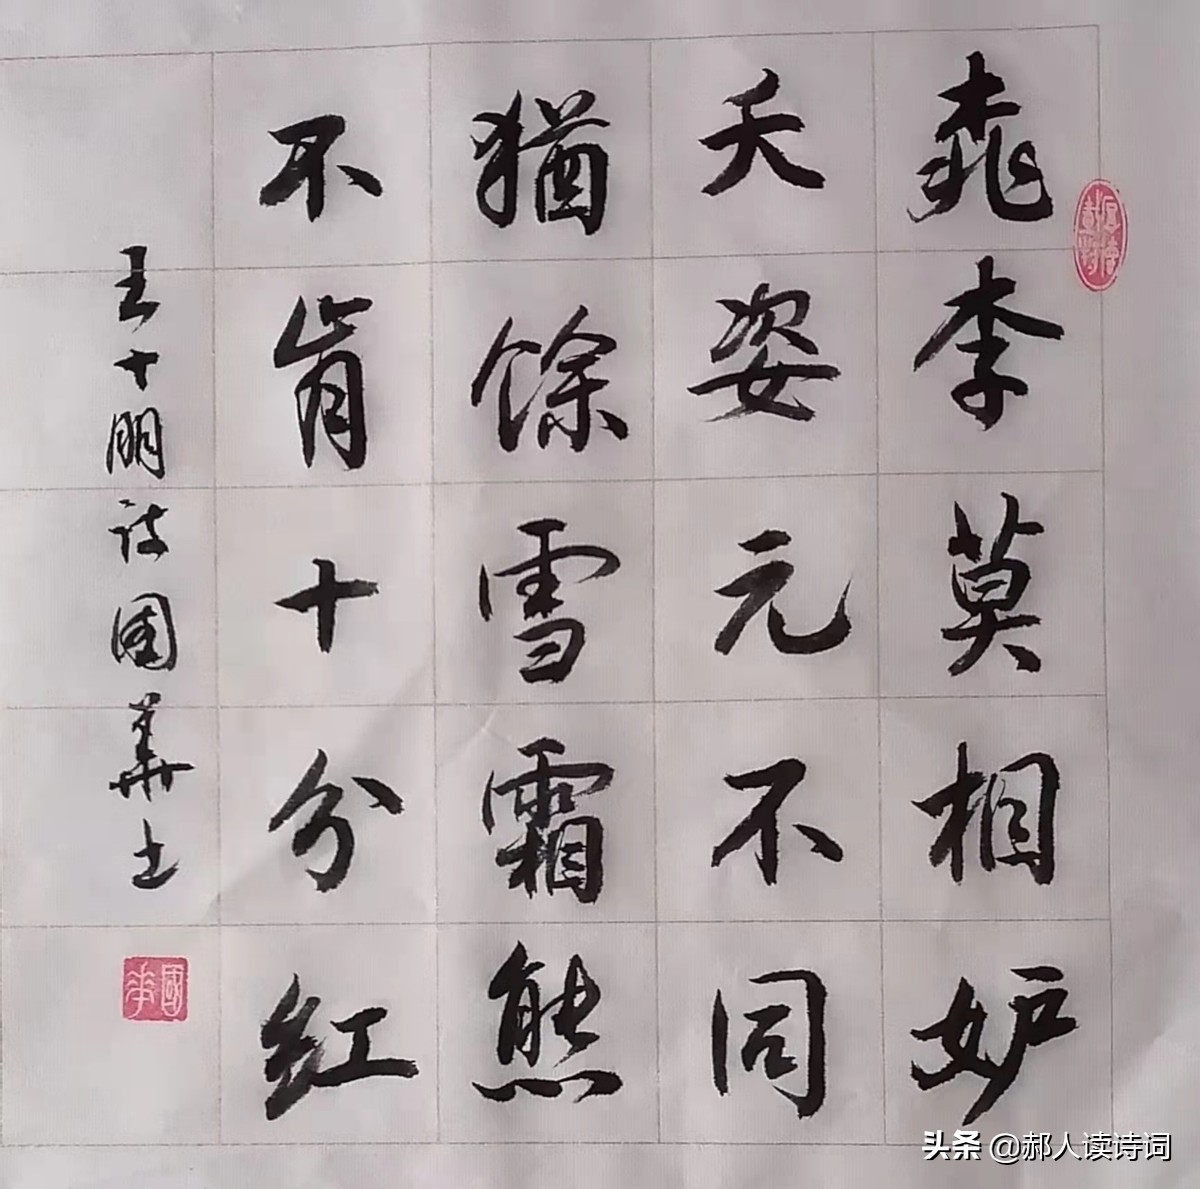 桃李莫相妒
夭姿元不同
猶餘雪霜態
不肯十分红
王十朋诗国華书
國华
头条 @郝人读诗词